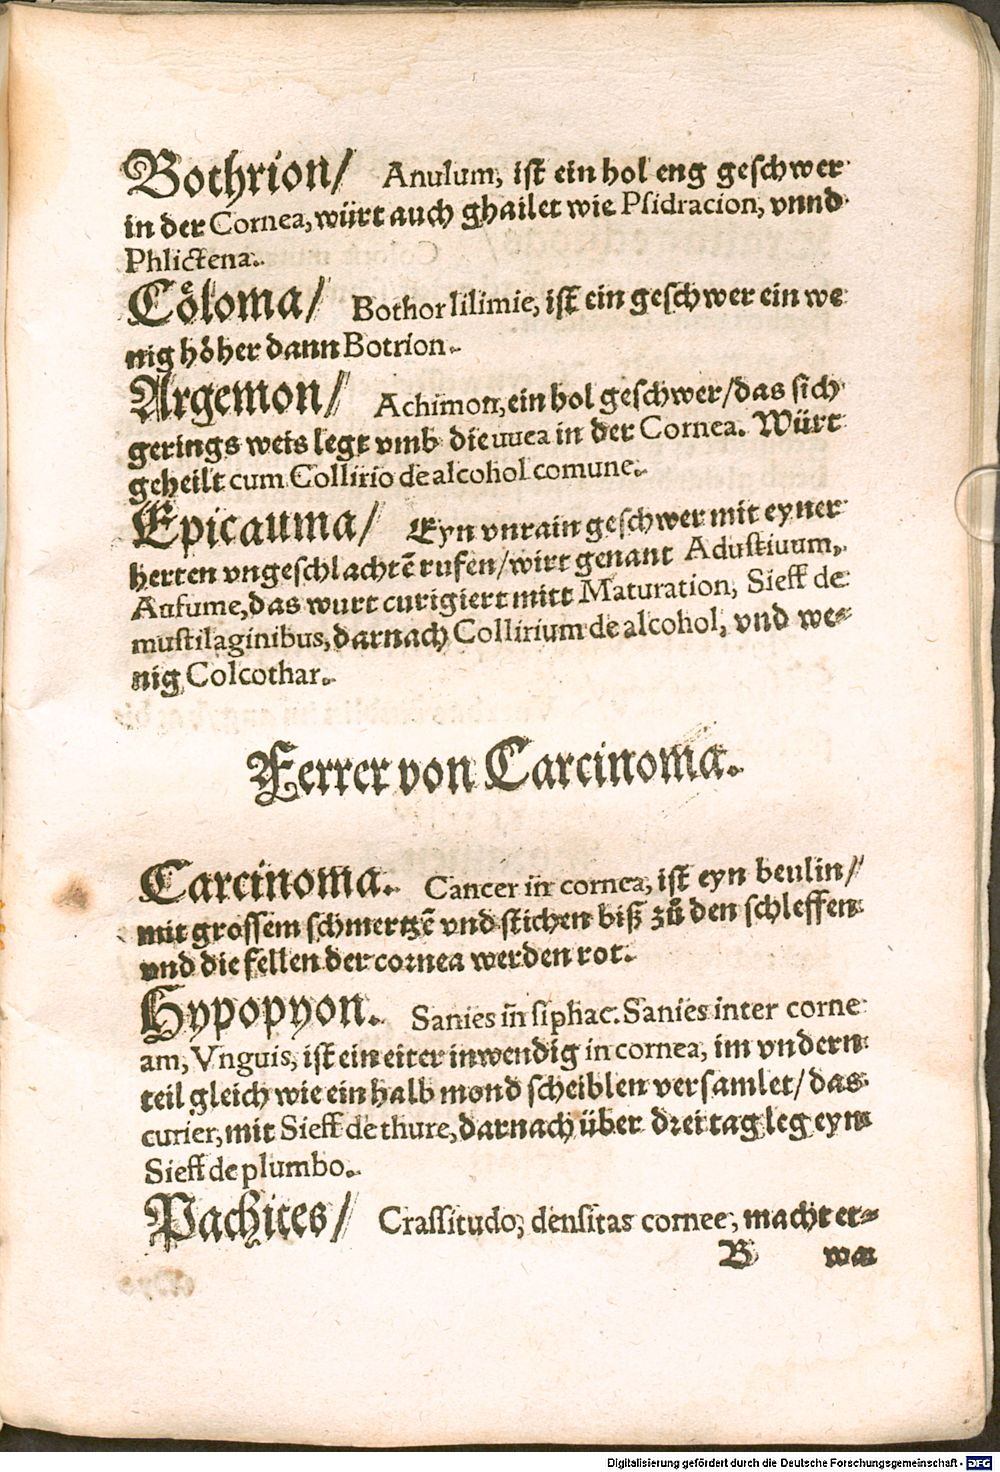 Bothrion/ Anulum, ist ein hol eng geschwer
in der Cornea, würt auch ghailet wie Psidracion, vnnd
Phlictena.
Coͤloma/ Bothor lilimie, ist ein geschwer ein we
nig hoͤher dann Botrion.
Argemon/ Achimon, ein hol geschwer/das sich
gerings weis legt vmb die uuea in der Cornea. Würt
geheilt cum Collirio de alcohol comune.
Epicauma/ Eyn vnrain geschwer mit eyner
herten vngeschlachtẽ rufen/wirt genant Adustiuum,
Aufume, das wurt curigiert mitt Maturation, Sieff de
mustilaginibus, darnach Collirium de alcohol, vnd we-
nig Colcothar.
Ferrer von Carcinoma.
Carcinoma. Cancer in cornea, ist eyn beulin/
mit grossem schmertzẽ vnd stichen biß zuͦ den schleffen
vnd die fellen der cornea werden rot.
Hypopyon. Sanies iñ siphac. Sanies inter corne
am, Vnguis, ist ein eiter inwendig in cornea, im vndern
teil gleich wie ein halb mond scheiblen versamlet/das
curier, mit Sieff de thure, darnach über drei tag leg eyn
Sieff de plumbo.
Pachites/ Crassitudo, densitas cornee, macht et-
B was
Digitalisierung gefördert durch die Deutsche Forschungsgemeinschaft - DFG